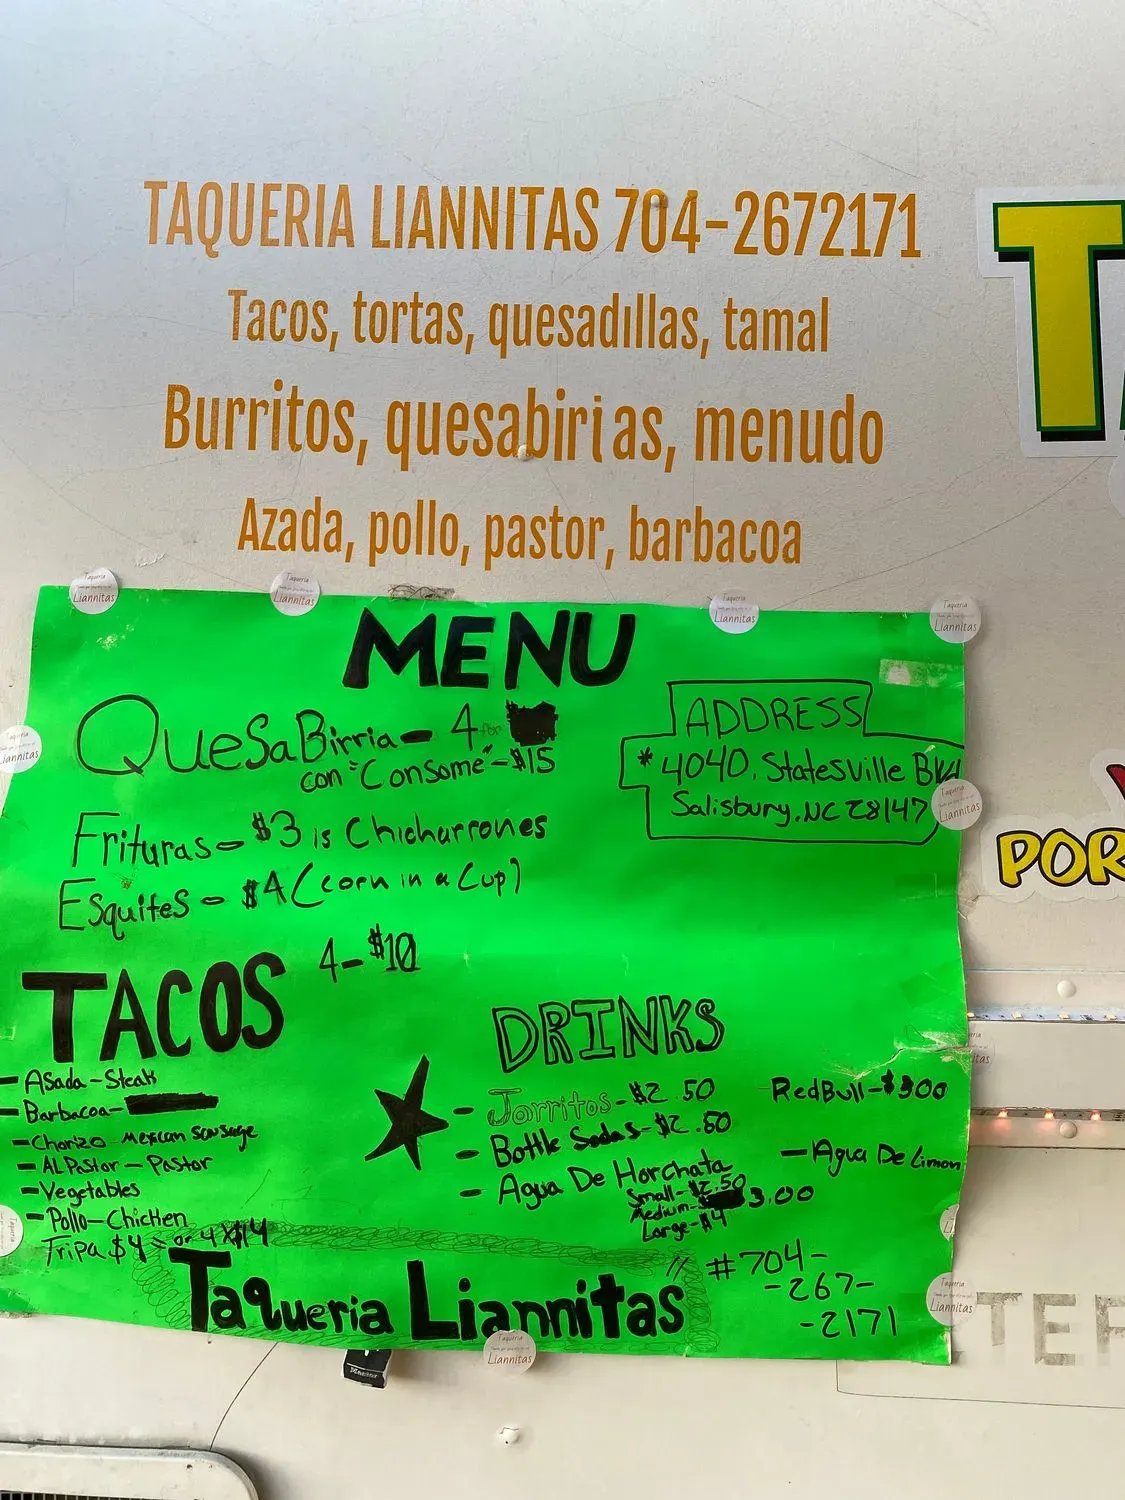 TAQUERIA LIANNITAS 704-2672171
Tacos, tortas, quesadillas, tamal
Burritos, quesabirias, menudo
Azada, pollo, pastor, barbacoa
MENU
QueSaBirria- 4 for
con "Consome"-$15
Frituras- $3 is Chicharrones
Esquites - $4 (corn in a Cup)
ADDRESS
*4040. Statesville Blvd
Salisbury, NC 28147
TACOS 4-$10
- Asada-Steak
- Barbacoa-
- Chorizo-Mexican Sausage
- AL Pastor - Pastor
- Vegetables
- Pollo-Chicken
Tripa $4 or 4x$14
DRINKS
- Jarritos-$2.50
- Bottle Sodas-$2.50
- Agua De Horchata
Small-$2.50
Medium-$3.00
Large-$4
RedBull-$300
- Agua De Limon
Taqueria Liannitas
#704-
-267-
-2171
Taqueria
Liannitas
Taqueria
Liannitas
Taqueria
Liannitas
Taqueria
Liannitas
Liannitas
Taqueria
Liannitas
Taqueria
Liannitas
Taqueria
Liannitas
T
POR
TER